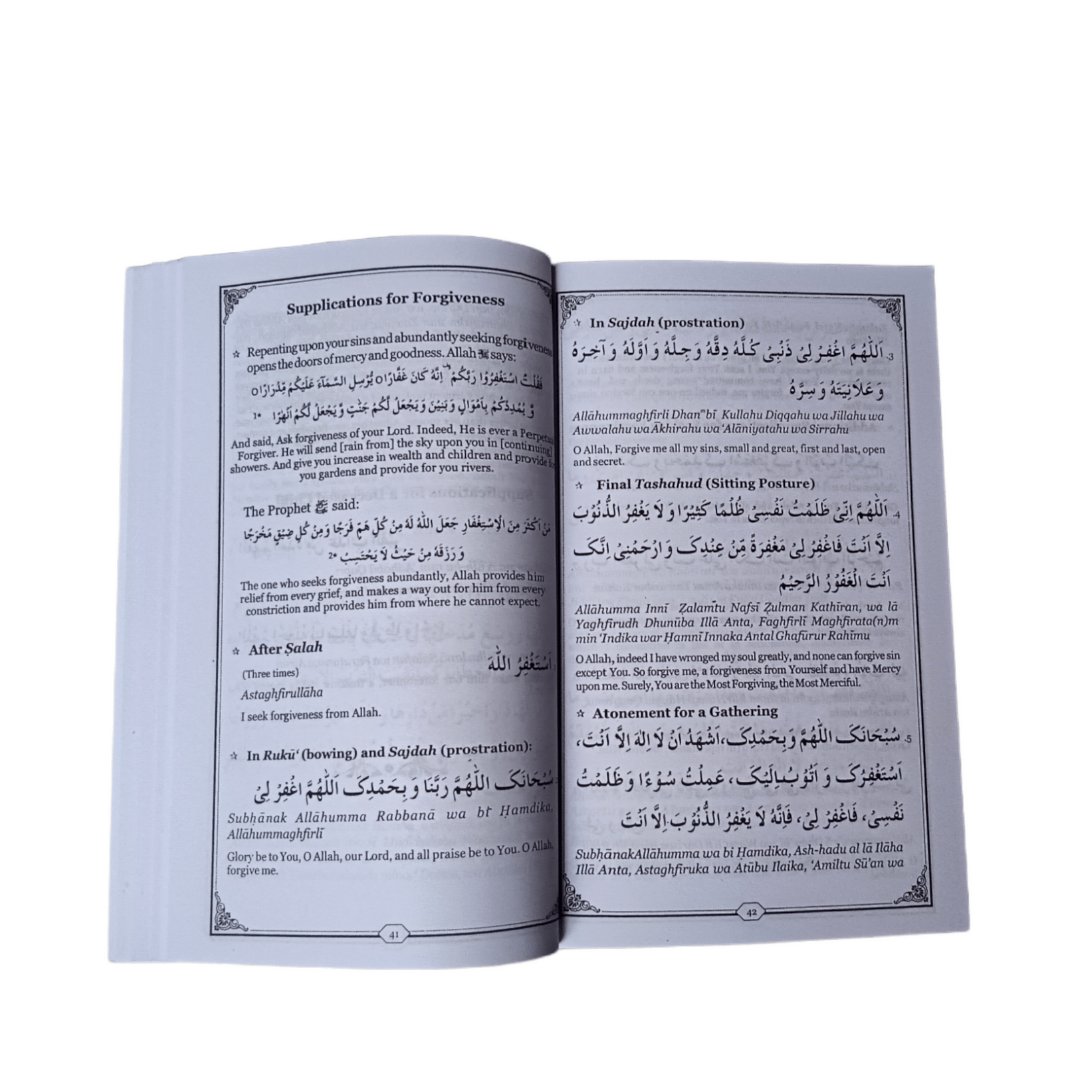 Supplications for Forgiveness
☆ Repenting upon your sins and abundantly seeking forgiveness
opens the doors of mercy and goodness. Allah ﷻ says:
فَقُلْتُ اسْتَغْفِرُوْا رَبَّكُمْ ؕ اِنَّهٗ كَانَ غَفَّارًا ○ يُّرْسِلِ السَّمَآءَ عَلَيْكُمْ مِّدْرَارًا ○
وَّ يُمْدِدْكُمْ بِاَمْوَالٍ وَّبَنِيْنَ وَيَجْعَلْ لَّكُمْ جَنّٰتٍ وَّيَجْعَلْ لَّكُمْ اَنْهٰرًا
And said, Ask forgiveness of your Lord. Indeed, He is ever a Perpetual
Forgiver. He will send [rain from] the sky upon you in [continuing]
showers. And give you increase in wealth and children and provide for
you gardens and provide for you rivers.
The Prophet ﷺ said:
مَنْ اَكْثَرَ مِنَ الْاِسْتِغْفَارِ جَعَلَ اللّٰهُ لَهٗ مِنْ كُلِّ هَمٍّ فَرَجًا وَمِنْ كُلِّ ضِيْقٍ مَخْرَجًا
وَ رَزَقَهٗ مِنْ حَيْثُ لَا يَحْتَسِبُ
The one who seeks forgiveness abundantly, Allah provides him
relief from every grief, and makes a way out for him from every
constriction and provides him from where he cannot expect.
☆ After Ṣalah
(Three times)
اَسْتَغْفِرُ اللّٰهَ
Astaghfirullāha
I seek forgiveness from Allah.
☆ In Rukū‘ (bowing) and Sajdah (prostration):
سُبْحَانَکَ اللّٰهُمَّ رَبَّنَا وَ بِحَمْدِکَ اَللّٰهُمَّ اغْفِرْ لِیْ
Subḥānak Allāhumma Rabbanā wa bi Ḥamdika,
Allāhummaghfirlī
Glory be to You, O Allah, our Lord, and all praise be to You. O Allah,
forgive me.
41
☆ In Sajdah (prostration)
3. اَللّٰهُمَّ اغْفِرْ لِیْ ذَنْبِیْ کُلَّهٗ دِقَّهٗ وَ جِلَّهٗ وَ اَوَّلَهٗ وَ آخِرَهٗ
وَ عَلَانِيَتَهٗ وَ سِرَّهٗ
Allāhummaghfirli Dhan"bī Kullahu Diqqahu wa Jillahu wa
Awwalahu wa Ākhirahu wa ‘Alāniyatahu wa Sirrahu
O Allah, Forgive me all my sins, small and great, first and last, open
and secret.
☆ Final Tashahud (Sitting Posture)
4. اَللّٰهُمَّ اِنِّیْ ظَلَمْتُ نَفْسِیْ ظُلْمًا کَثِيْرًا وَّ لَا يَغْفِرُ الذُّنُوْبَ
اِلَّا اَنْتَ فَاغْفِرْ لِیْ مَغْفِرَةً مِّنْ عِنْدِکَ وَ ارْحَمْنِیْ اِنَّکَ
اَنْتَ الْغَفُوْرُ الرَّحِيْمُ
Allāhumma Innī Ẓalamtu Nafsī Ẓulman Kathīran, wa lā
Yaghfirudh Dhunūba Illā Anta, Faghfirlī Maghfirata(n)m
min ‘Indika war Ḥamnī Innaka Antal Ghafūrur Rahīmu
O Allah, indeed I have wronged my soul greatly, and none can forgive sin
except You. So forgive me, a forgiveness from Yourself and have Mercy
upon me. Surely, You are the Most Forgiving, the Most Merciful.
☆ Atonement for a Gathering
5. سُبْحَانَکَ اللّٰهُمَّ وَ بِحَمْدِکَ، اَشْهَدُ اَنْ لَّا اِلٰهَ اِلَّا اَنْتَ،
اَسْتَغْفِرُکَ وَ اَتُوْبُ اِلَيْکَ، عَمِلْتُ سُوْءًا وَّ ظَلَمْتُ
نَفْسِیْ، فَاغْفِرْ لِیْ، فَاِنَّهٗ لَا يَغْفِرُ الذُّنُوْبَ اِلَّا اَنْتَ
SubḥānakAllāhumma wa bi Ḥamdika, Ash-hadu al lā Ilāha
Illā Anta, Astaghfiruka wa Atūbu Ilaika, ‘Amiltu Sū’an wa
42